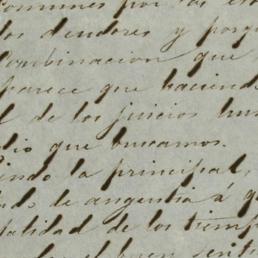 comunes por las
los deudores y porq
combinacion que
parece que haciend
l de los juicios hus
dio que buscamos.
endo la principal,
tado de angustia á q
talidad de los tiemp